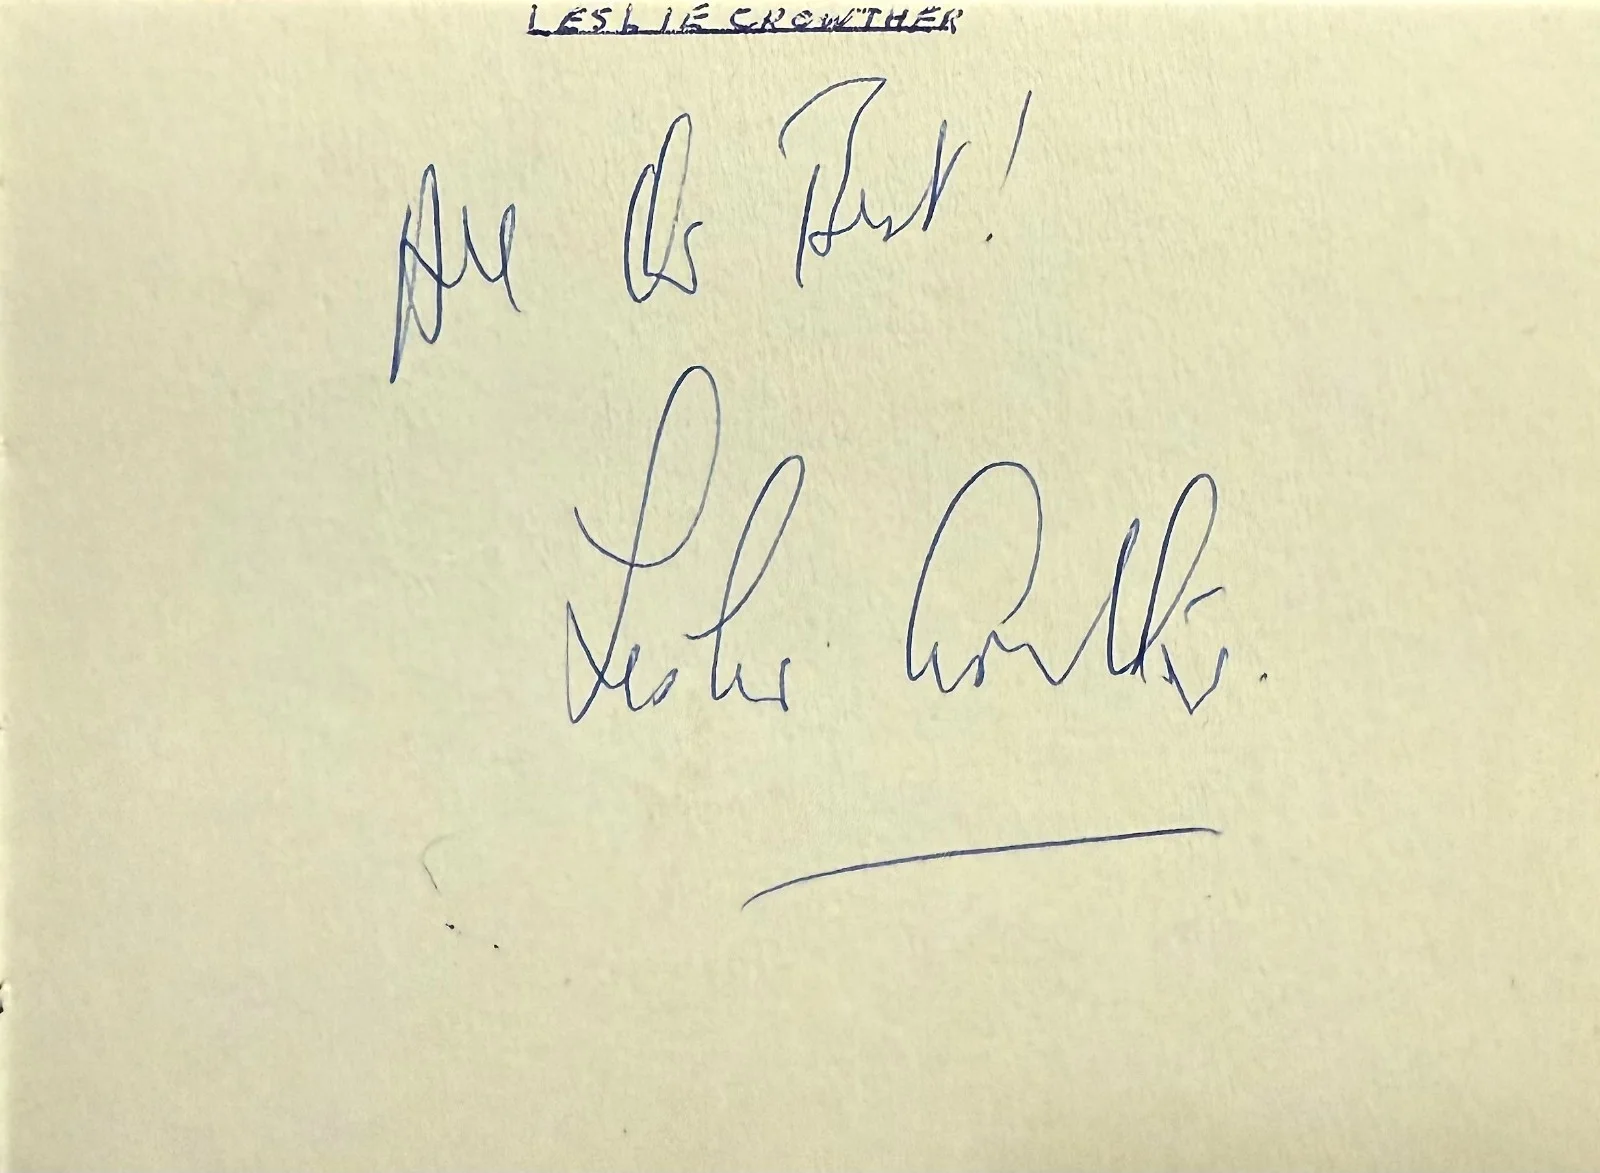 LESLIE CROWTHER
All the Best!
Leslie Crowther.